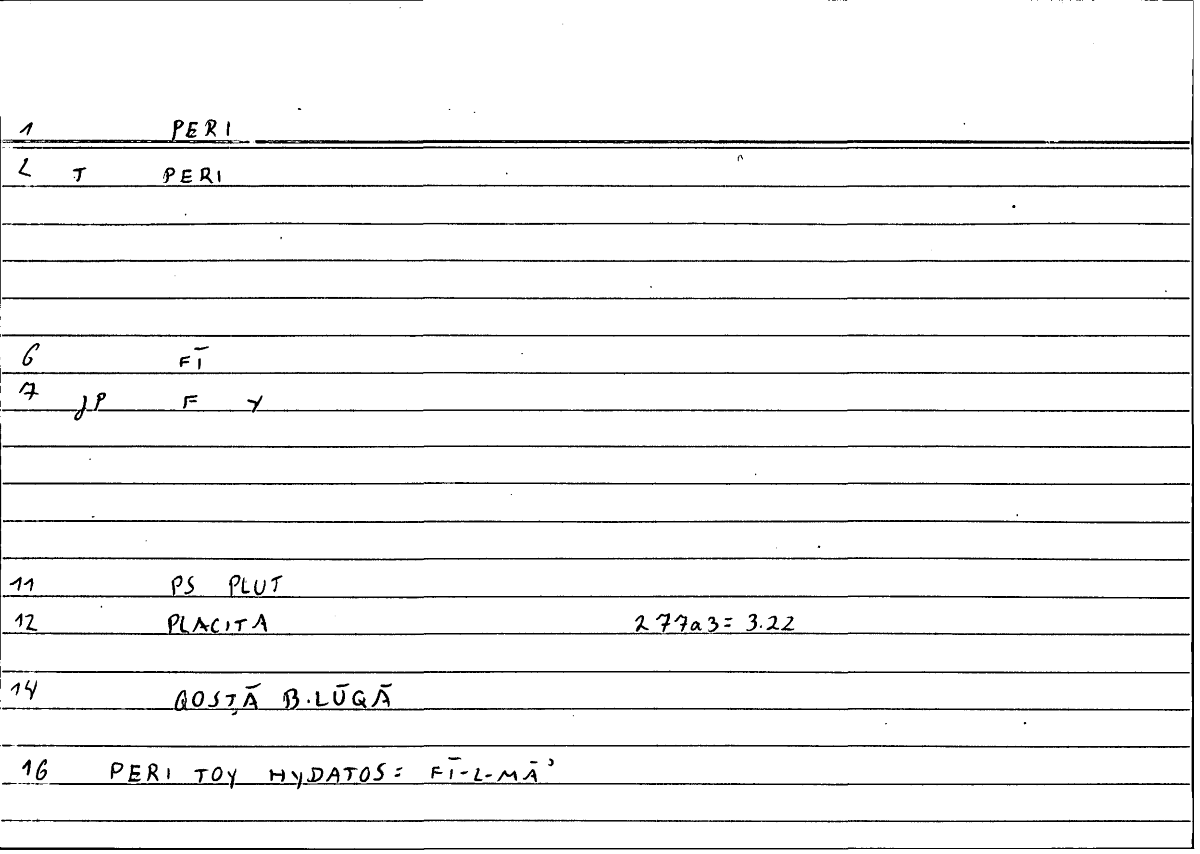 1 PERI
2 T PERI
6 FĪ
7 JP F Y
11 PS PLUT
12 PLACITA 277a3= 3.22
14 QOSṬĀ B.LŪQĀ
16 PERI TOY HYDATOS= FĪ-L-MĀʾ